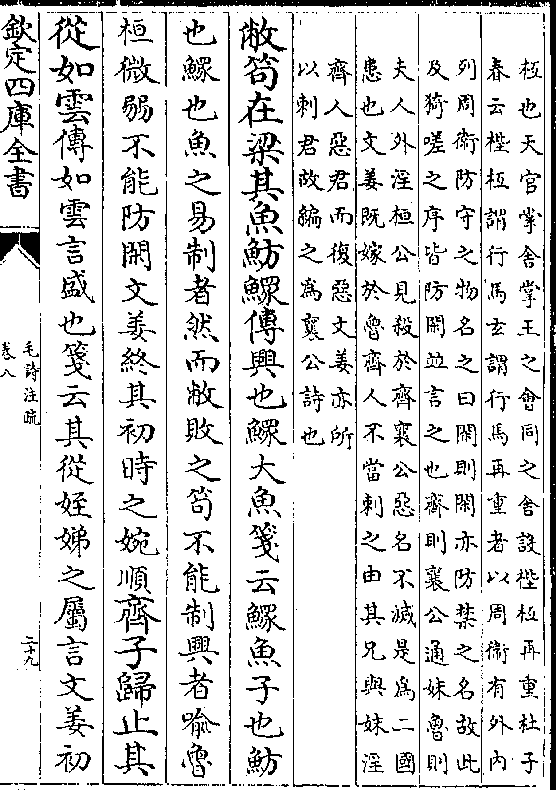 枑也天官掌舍掌王之會同之舍設梐枑再重杜子
春云梐枑謂行馬玄謂行馬再重者以周衛有外內
列周衛防守之物名之曰閑則閑亦防禁之名故此
及猗嗟之序皆防閑並言之也齊則襄公通妹魯則
夫人外淫桓公見殺於齊襄公惡名不滅是爲二國
患也文姜既嫁於魯齊人不當刺之由其兄與妹淫
齊人惡君而復惡文姜亦所
以刺君故編之爲襄公詩也
敝笱在梁其魚魴鰥傳興也鰥大魚箋云鰥魚子也魴
也鰥也魚之易制者然而敝敗之笱不能制興者喻魯
桓微弱不能防閑文姜終其初時之婉順齊子歸止其
從如雲傳如雲言盛也箋云其從姪娣之屬言文姜初
欽定四庫全書
毛詩注疏
卷八
二十九